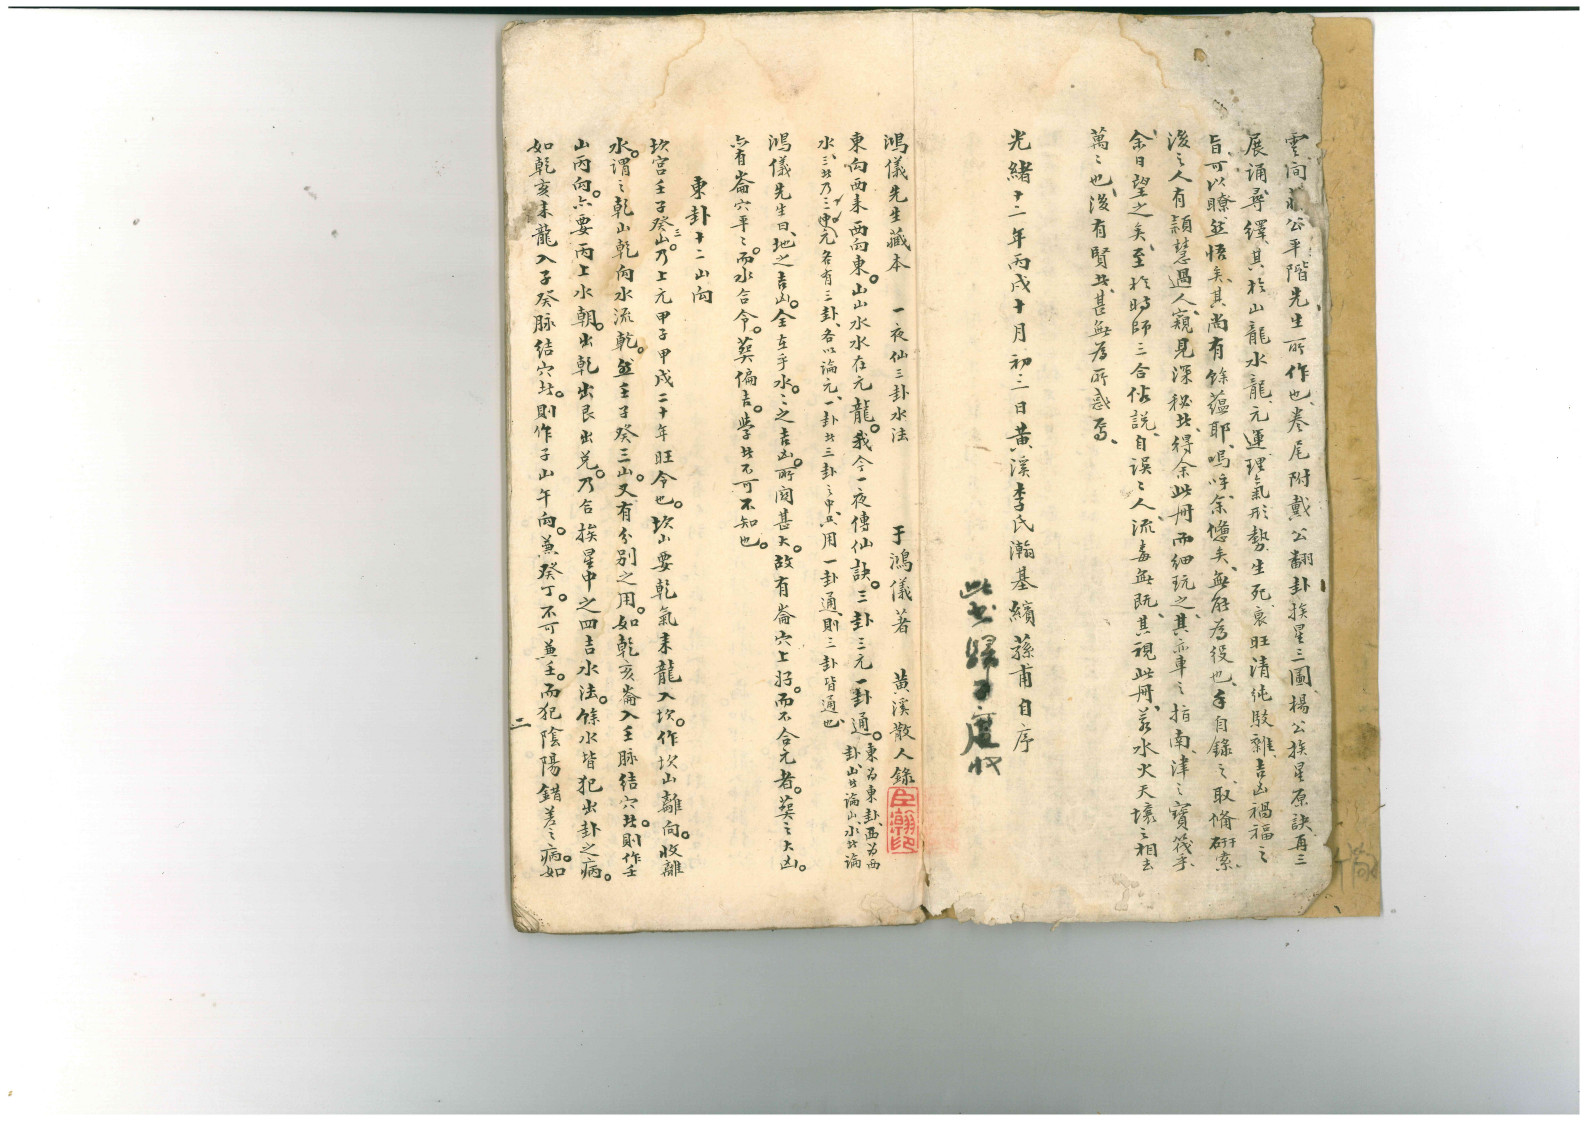 雲間蔣公平階先生所作也、卷尾附戴公翻卦挨星三圖楊公挨星原訣再三
展誦尋繹、其於山龍水龍、元運理氣形勢生死衰旺清純駁雜、吉凶禍福之
旨可以瞭然悟矣、其尚有餘蘊耶、嗚呼、余憊矣、無能為役也、手自錄之、取備研索、
後之人有穎慧過人、窺見深秘者、得余此冊而細玩之、其亦車之指南、津之寶筏乎、
余日望之矣、至於時師三合俗說、自誤誤人、流毒無既、其視此冊、若水火天壤之相去
萬萬也、後有賢者、甚無為所惑焉、
光緒十二年丙戌十月初三日黃溪李氏瀚基繽蓀甫自序
此書歸 收
鴻儀先生藏本 一夜仙三卦水法 于鴻儀著 黃溪散人錄
東向西來西向東。山山水水在元龍。我今一夜傳仙訣。三卦三元一卦通。東為東卦、西為西
卦、山者論山、水者論
水、三者乃三元、元各有三卦、各以論元、一卦者三卦之中、只用一卦通、則三卦皆通也、
鴻儀先生曰、地之吉凶。全在乎水。水之吉凶。所関甚大。故有崙穴上好。而不合元者。葬之大凶。
亦有崙穴平平。而水合令。葬偏吉。學者不可不知也。
東卦十二山向
坎宮壬子癸三山。乃上元甲子甲戌二十年旺令也。坎山要乾氣來龍入坎。作坎山離向。收離
水。謂之乾山乾向水流乾。然壬子癸三山。又有分別之用。如乾亥崙入壬脉結穴者。則作壬
山丙向。亦要丙上水朝。出乾出艮出兌。乃合挨星中之四吉水法。餘水皆犯出卦之病。
如乾亥來龍入子癸脉結穴者。則作子山午向。兼癸丁。不可兼壬。而犯陰陽錯差之病。如
二